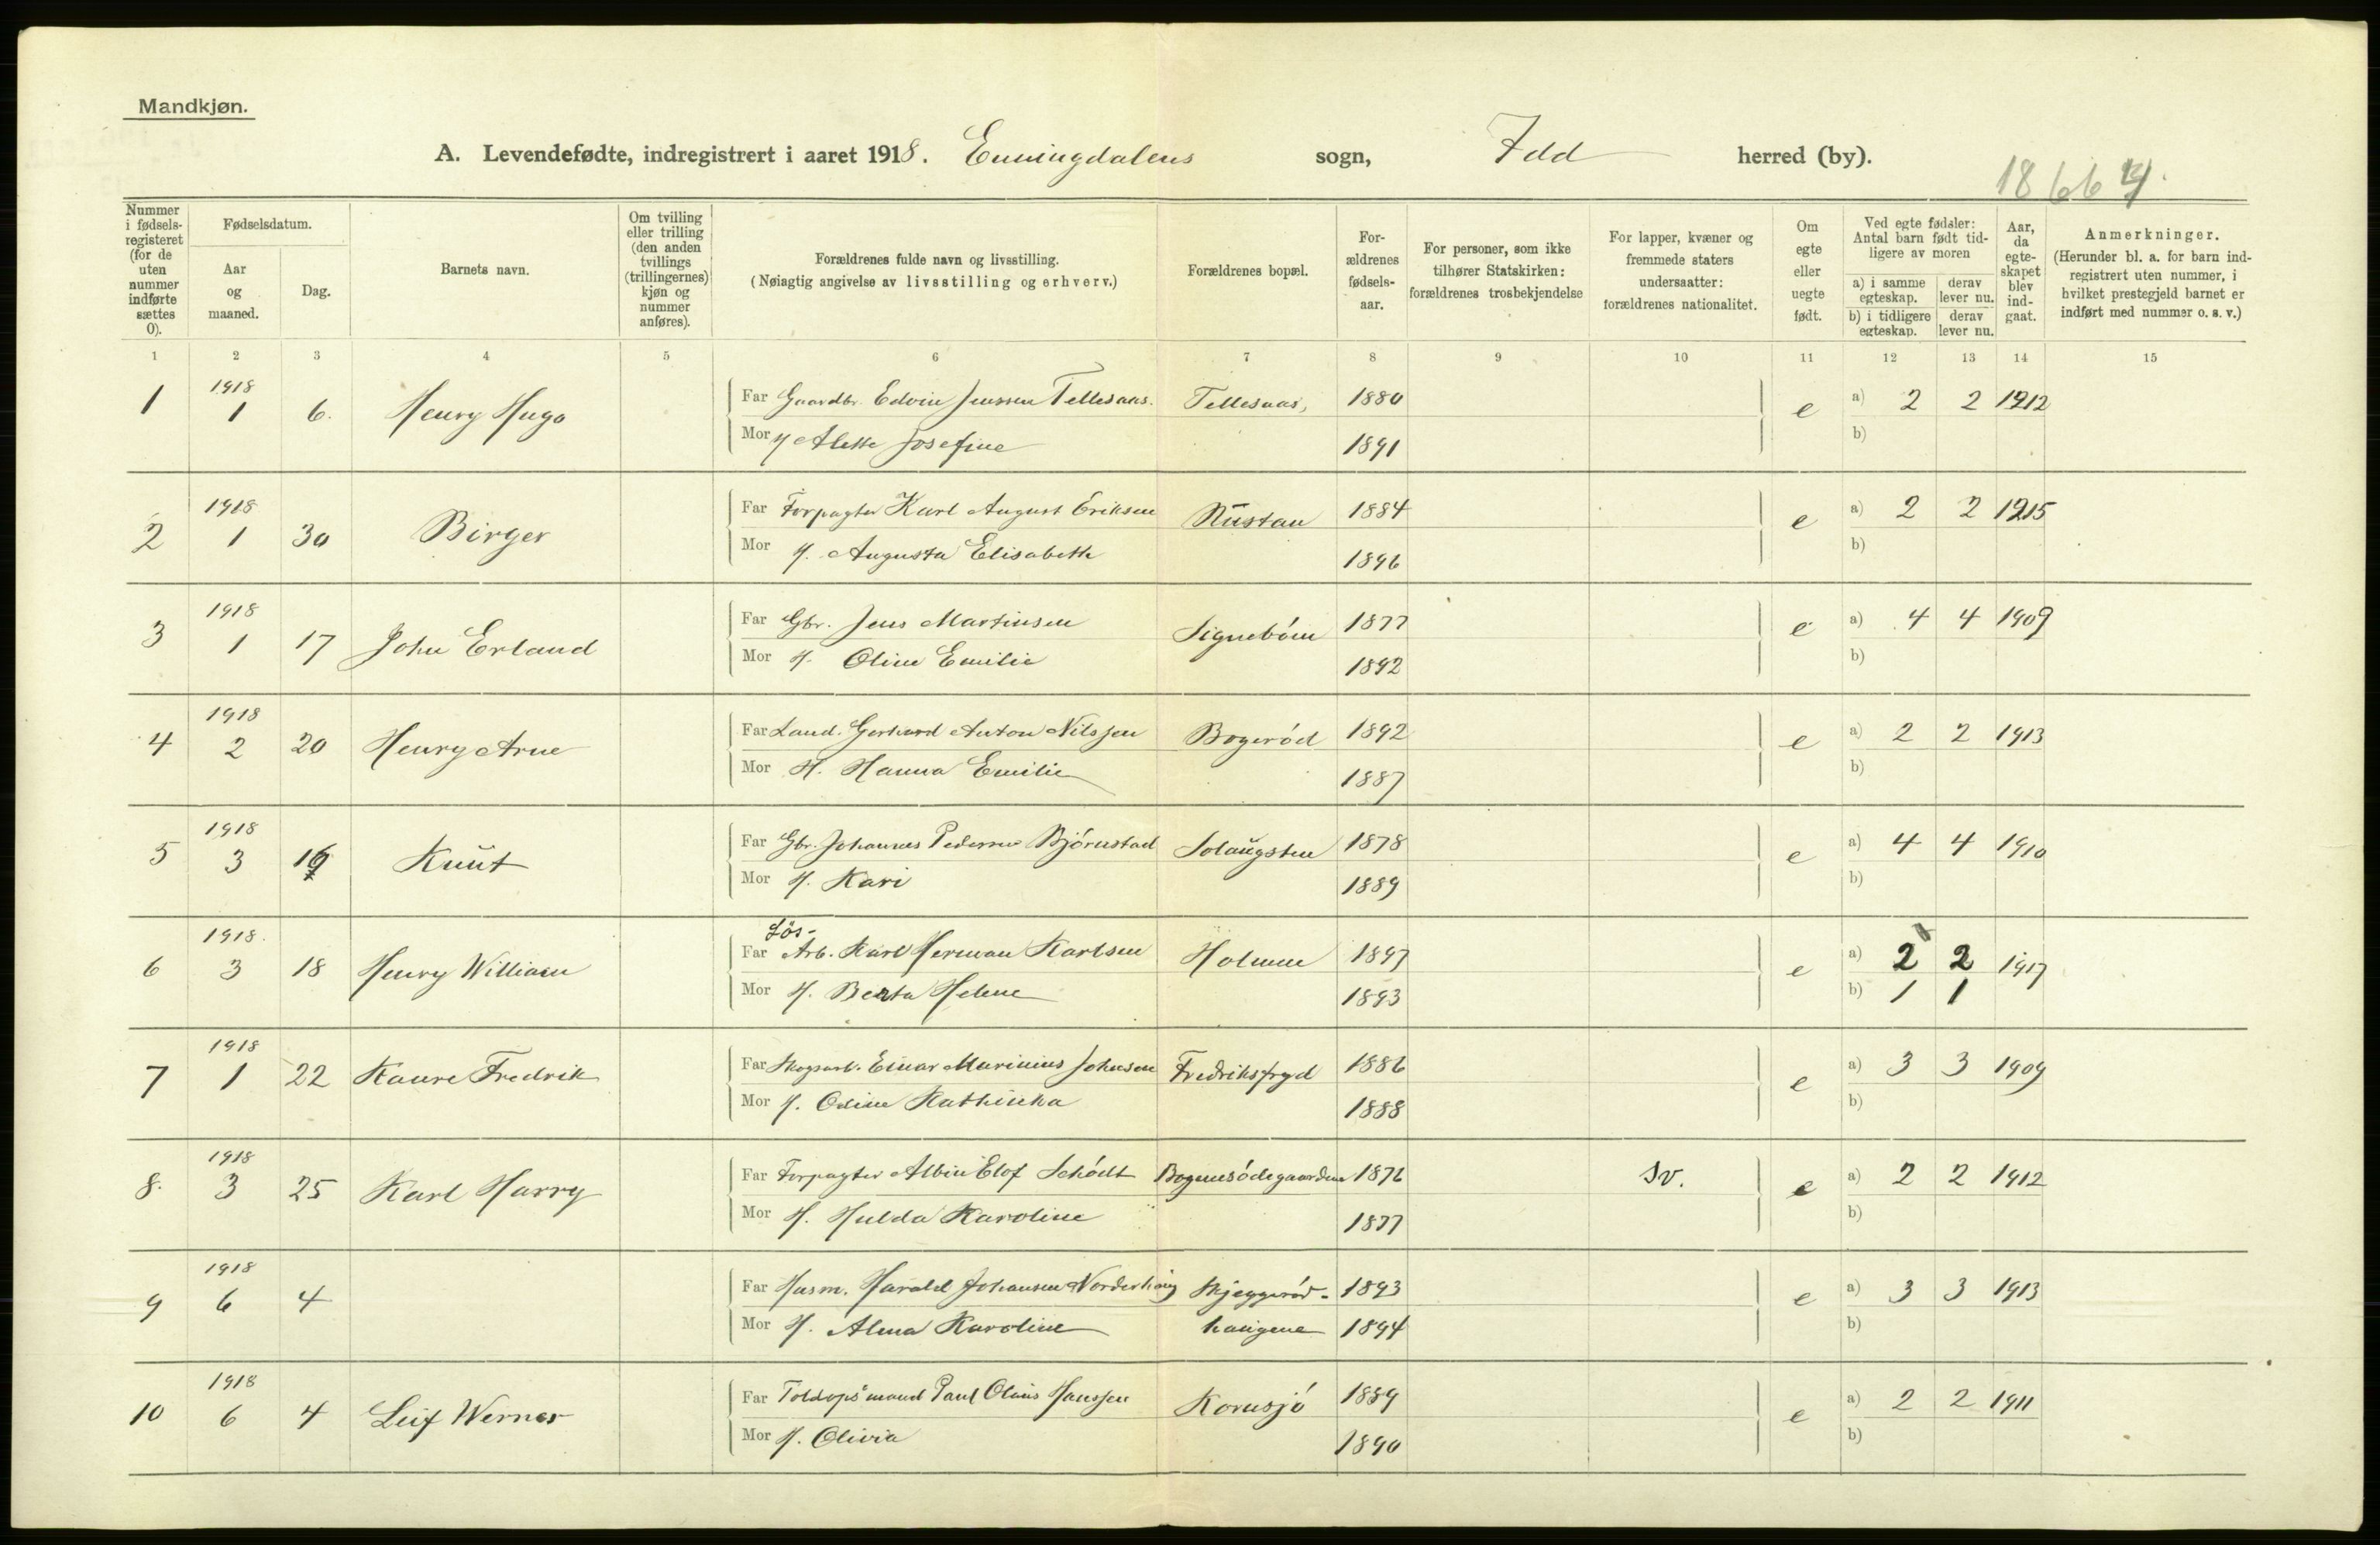 Mandkjøn.
A. Levendefødte, indregistrert i aaret 1918. Enningdalens sogn, Idd herred (by).
1866
Nummer i fødselsregisteret (for de uten nummer indførte sættes 0).
Fødselsdatum.
Aar og maaned.
Dag.
Barnets navn.
Om tvilling eller trilling (den anden tvillings (trillingernes) kjøn og nummer anføres).
Forældrenes fulde navn og livsstilling.
(Nøiagtig angivelse av livsstilling og erhverv.)
Forældrenes bopæl.
Forældrenes fødselsaar.
For personer, som ikke tilhører Statskirken: forældrenes trosbekjendelse
For lapper, kvæner og fremmede staters undersaatter: forældrenes nationalitet.
Om egte eller uegte født.
Ved egte fødsler: Antal barn født tidligere av moren
a) i samme egteskap. derav lever nu.
b) i tidligere egteskap. derav lever nu.
Aar, da egteskapet blev indgaat.
Anmerkninger.
(Herunder bl. a. for barn indregistrert uten nummer, i hvilket prestegjeld barnet er indført med nummer o. s. v.)
1 2 3 4 5 6 7 8 9 10 11 12 13 14 15
1 1918 1 6. Henry Hugo Far Gaardbr. Edvin Jenssen Tellesaas. Tellesaas, 1880 e a) 2 2 1912
Mor H Alette Josefine 1891 b)
2 1918 1 30 Birger Far Forpagter Karl August Eriksen Rustan 1884 e a) 2 2 1915
Mor H. Augusta Elisabeth 1896 b)
3 1918 1 17 John Erland Far Gbr. Jens Martinsen Signebøen 1877 e a) 4 4 1909
Mor H. Oline Emilie 1892 b)
4 1918 2 20 Henry Arne Far Land. Gerhard Anton Nilssen Bogerød 1892 e a) 2 2 1913
Mor H. Hanna Emilie 1887 b)
5 1918 3 Knut Far Gbr. Johannes Pedersen Bjørnstad Solaugsten 1878 e a) 4 4 1910
Mor H. Kari 1889 b)
Løs-
6 1918. 3 18 Henry William Far Arb. Karl Herman Karlsen Holmen 1897 e a) 2 2 1917
Mor H. Berta Helene 1893 b) 1 1
7 1918 1 22 Kaare Fredrik Far Skogsarb. Einar Marinius Johnsen Fredriksfryd 1886 e a) 3 3 1909
Mor H. Oline Kathinka 1888 b)
8. 1918 3 25 Karl Harry Far Forpagter Albin Elof Schødt Bogenesødegaarden 1876 Sv. e a) 2 2 1912
Mor H. Hulda Karoline 1877 b)
9 1918 6 4 Far Husm. Harald Johansen Norderhaug Skjeggerød- 1893 e a) 3 3 1913
Mor H. Alma Karoline haugene 1894 b)
10 1918 6 4 Leif Werner Far Toldops'mand Paul Olaus Hanssen Kornsjø 1889 e a) 2 2 1911
Mor H. Olivia 1890 b)